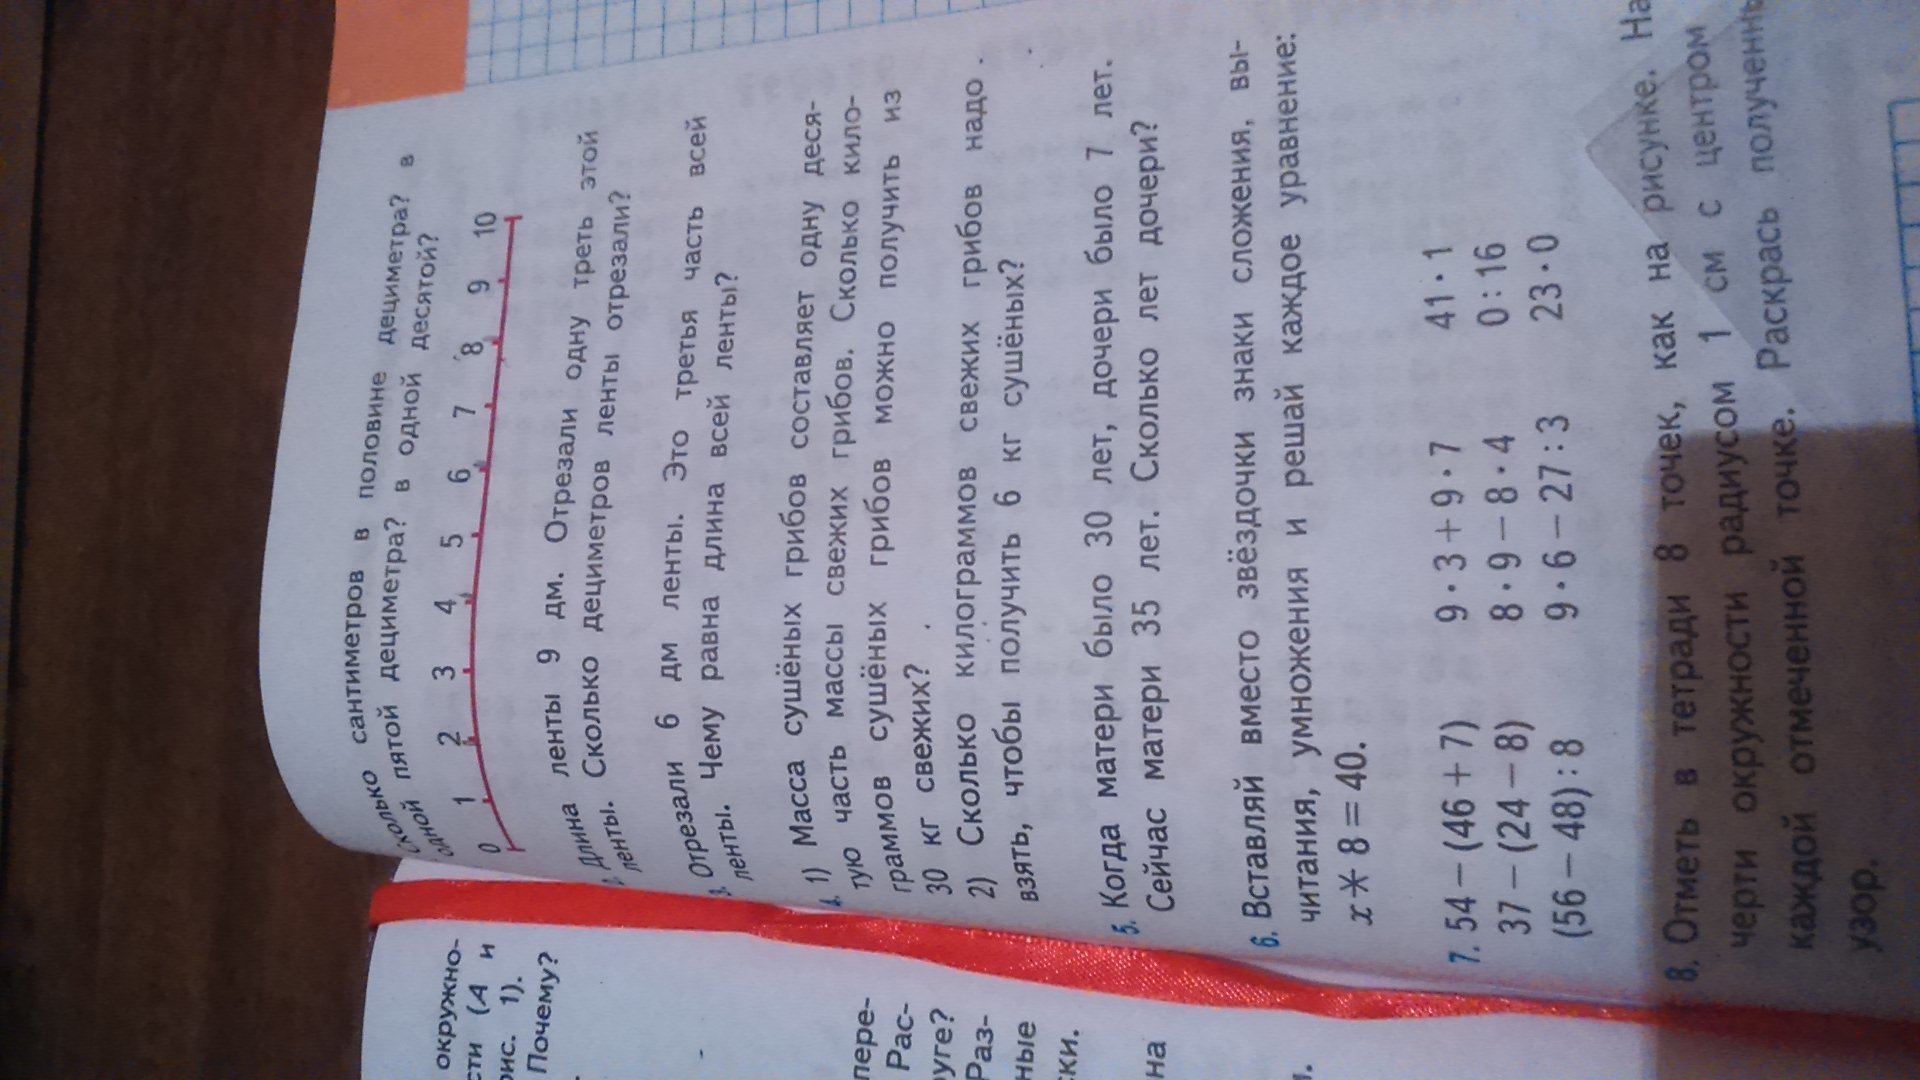 окружно-
сти (А и
рис. 1).
Почему?
пере-
Рас-
руге?
Раз-
ные
ски.
на
сколько сантиметров в половине дециметра? в
одной пятой дециметра? в одной десятой?
0 1 2 3 4 5 6 7 8 9 10
2. Длина ленты 9 дм. Отрезали одну треть этой
ленты. Сколько дециметров ленты отрезали?
3. Отрезали 6 дм ленты. Это третья часть всей
ленты. Чему равна длина всей ленты?
4. 1) Масса сушёных грибов составляет одну деся-
тую часть массы свежих грибов. Сколько кило-
граммов сушёных грибов можно получить из
30 кг свежих?
2) Сколько килограммов свежих грибов надо
взять, чтобы получить 6 кг сушёных?
5. Когда матери было 30 лет, дочери было 7 лет.
Сейчас матери 35 лет. Сколько лет дочери?
6. Вставляй вместо звёздочки знаки сложения, вы-
читания, умножения и решай каждое уравнение:
x * 8 = 40.
7. 54 − (46 + 7) 9 · 3 + 9 · 7 41 · 1
37 − (24 − 8) 8 · 9 − 8 · 4 0 : 16
(56 − 48) : 8 9 · 6 − 27 : 3 23 · 0
8. Отметь в тетради 8 точек, как на рисунке. На
черти окружности радиусом 1 см с центром
каждой отмеченной точке. Раскрась полученны
узор.